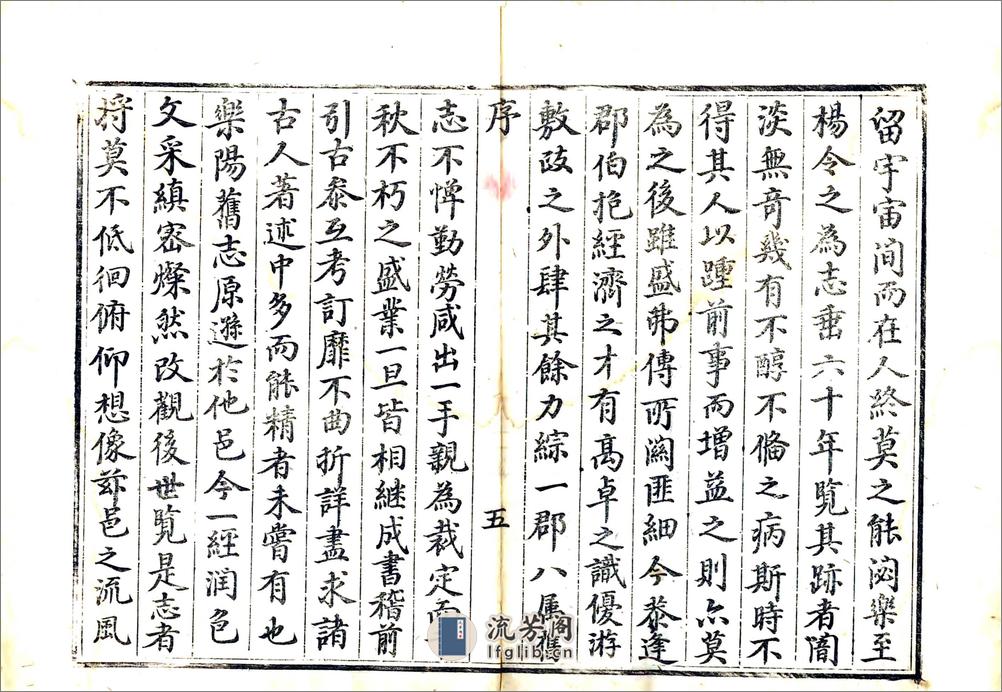 留宇宙间而在人終莫之能泯樂至
楊令之為志垂六十年覽其跡者闇
淡無竒幾有不醇不俻之病斯時不
得其人以踵前事而增益之則亦莫
為之後雖盛弗傳所闗匪細今恭逢
郡伯抱經濟之才有髙卓之識優游
敷政之外肆其餘力綜一郡八屬舊
序
五
志不憚勤勞咸出一手親為裁定而
秋不朽之盛業一旦皆相継成書稽前
引古叅互考訂靡不曲折詳盡求諸
古人著述中多而能精者未嘗有也
樂陽舊志原遜於他邑今一經润色
文采縝密燦然改觀後世覽是志者
将莫不低徊俯仰想像兹邑之流風
流芳阁
lfglib.cn